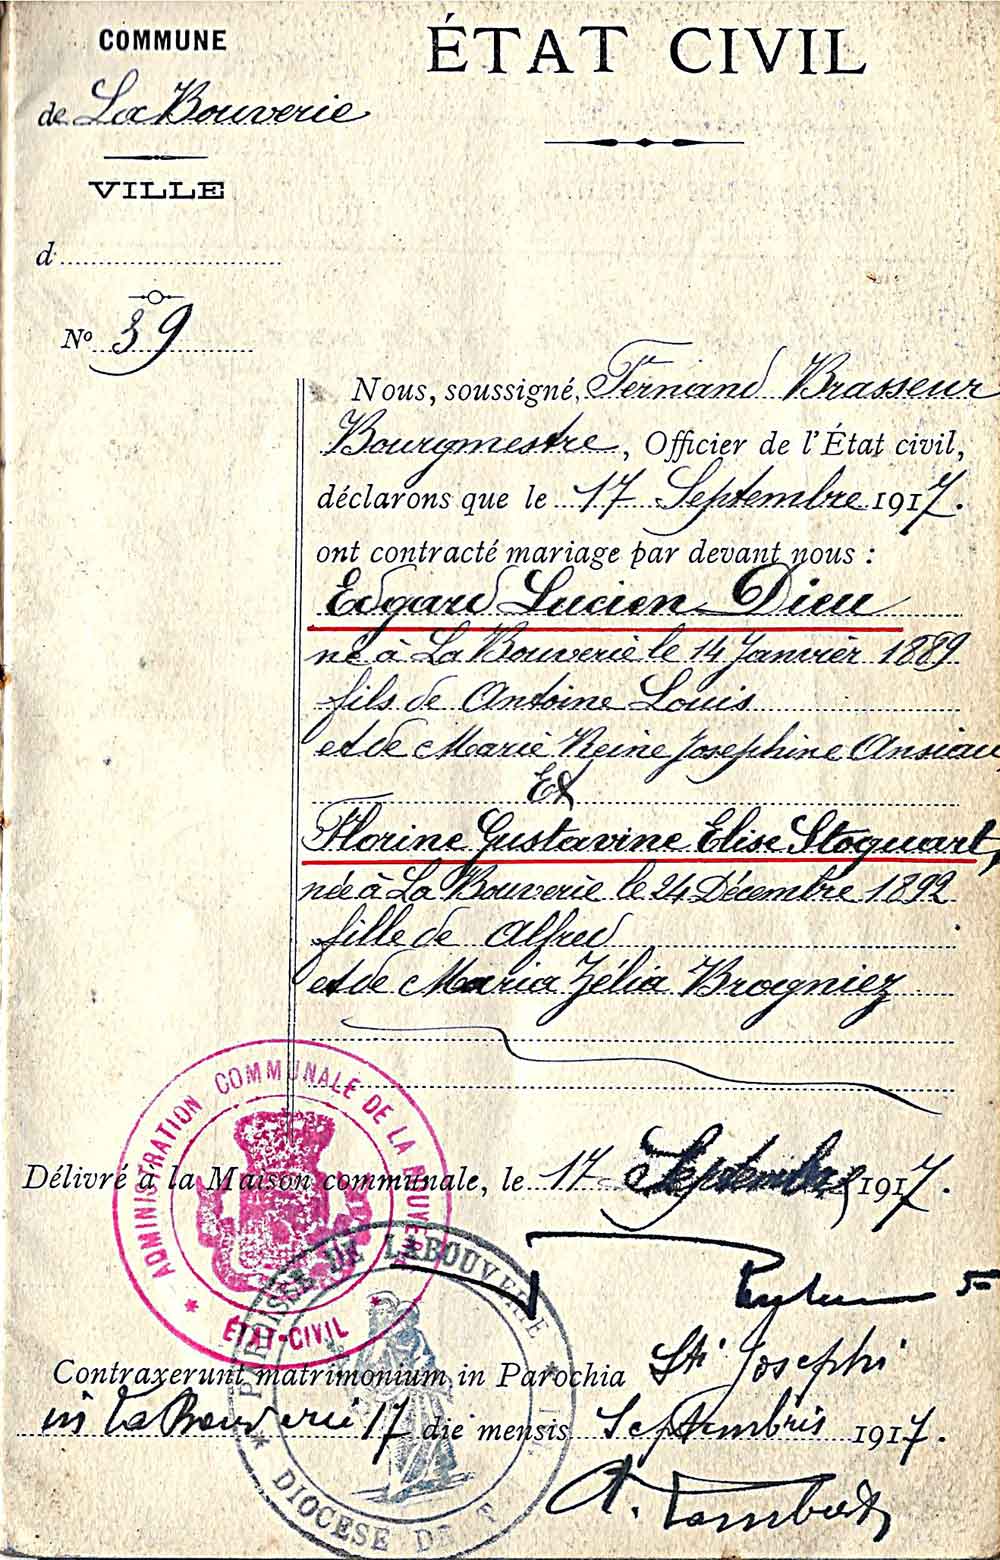 COMMUNE
de La Bouverie
VILLE
d
Nº 39
ÉTAT CIVIL
Nous, soussigné, Fernand Brasseur
Bourgmestre, Officier de l'État civil,
déclarons que le 17 Septembre 1917.
ont contracté mariage par devant nous :
Edgard Lucien Dieu
né à La Bouverie le 14 Janvier 1889
fils de Antoine Louis
et de Marie Reine Josephine Ansiau
Et
Florine Gustavine Elise Stoquart,
née à La Bouverie le 24 Décembre 1892
fille de Alfred
et de Maria Zélia Brogniez
ADMINISTRATION COMMUNALE DE LA BOUVERIE
ÉTAT-CIVIL
Délivré à la Maison communale, le 17 Septembre 1917.
PAROISSE DE LABOUVERIE
DIOCESE DE
Contraxerunt matrimonium in Parochia Sti Josephi
in La Bouverie 17 die mensis Septembris 1917.